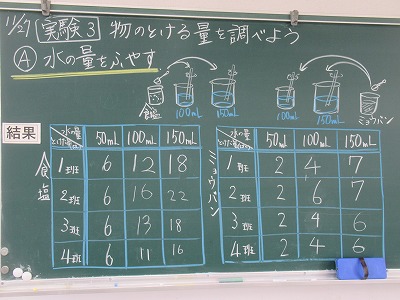 11/27 実験3 物のとける量を調べよう
Ⓐ 水の量をふやす
食塩 50mL 150mL 100mL 150mL ミョウバン
結果
食塩
水の量 50mL 100mL 150mL
1班 6 12 18
2班 6 16 22
3班 6 13 18
4班 6 11 16
ミョウバン
水の量 50mL 100mL 150mL
1班 2 4 7
2班 2 6 7
3班 2 4 6
4班 2 4 6